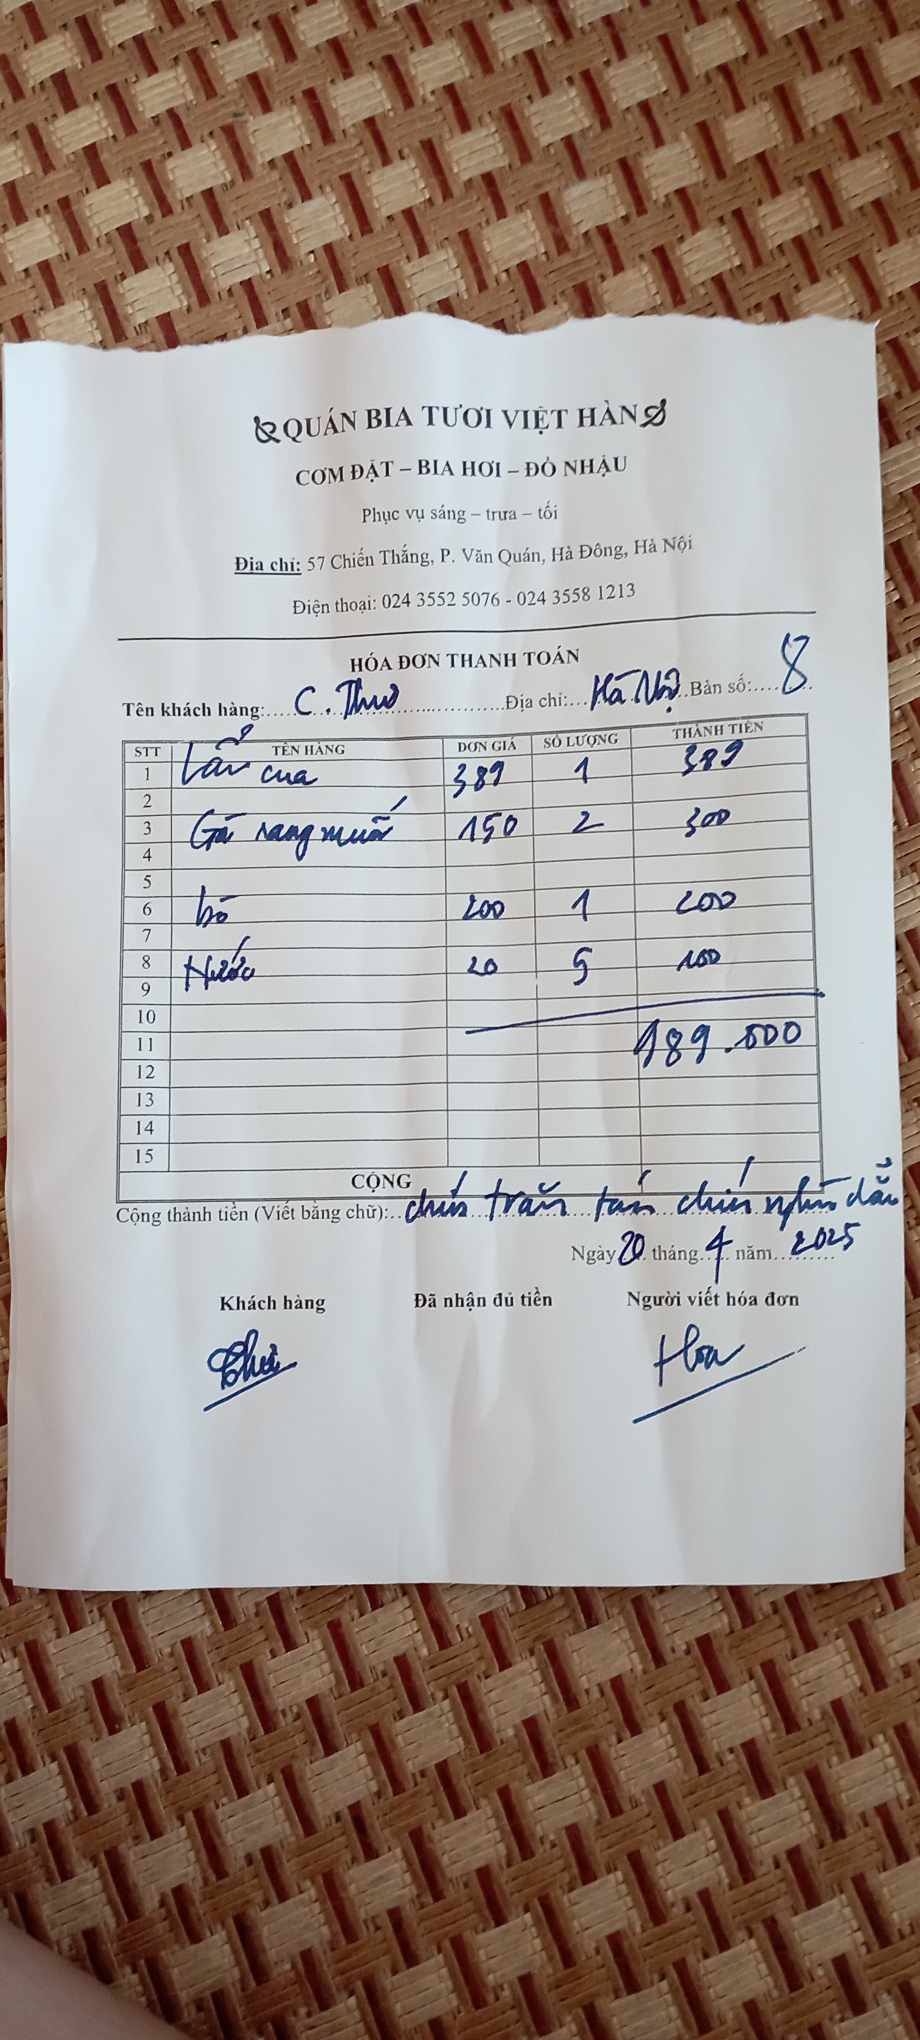 QUÁN BIA TƯƠI VIỆT HÀN
CƠM ĐẶT – BIA HƠI – ĐỒ NHẬU
Phục vụ sáng – trưa – tối
Địa chỉ: 57 Chiến Thắng, P. Văn Quán, Hà Đông, Hà Nội
Điện thoại: 024 3552 5076 - 024 3558 1213
HÓA ĐƠN THANH TOÁN
Tên khách hàng: C. Thư Địa chỉ: Hà Nội Bàn số: 8
STT TÊN HÀNG ĐƠN GIÁ SỐ LƯỢNG THÀNH TIỀN
1 Lẩu cua 389 1 389
2
3 Gà rang muối 150 2 300
4
5
6 bò 200 1 200
7
8 Nước 20 5 100
9
10
11 989.000
12
13
14
15
CỘNG
Cộng thành tiền (Viết bằng chữ): chín trăm tám chín nghìn
Ngày 20 tháng 4 năm 2025
Khách hàng Đã nhận đủ tiền Người viết hóa đơn
Hoa